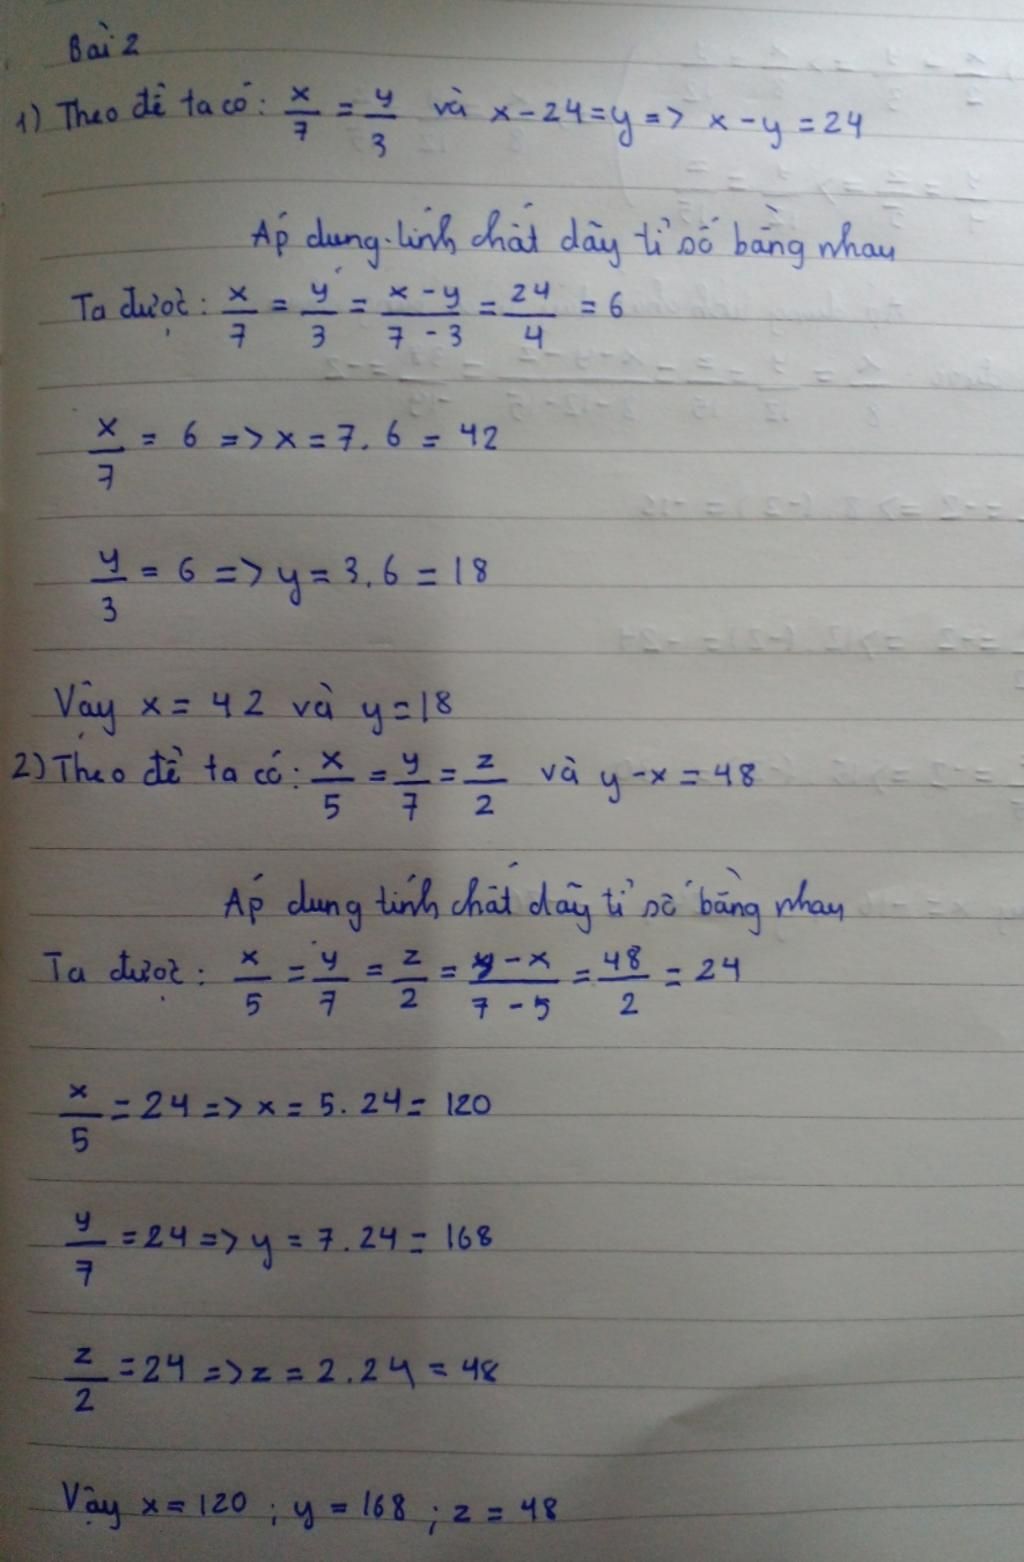 Bài 2
1) Theo đề ta có: x/7 = y/3 và x - 24 = y => x - y = 24
Áp dụng tính chất dãy tỉ số bằng nhau
Ta được: x/7 = y/3 = x - y/7 - 3 = 24/4 = 6
x/7 = 6 => x = 7. 6 = 42
y/3 = 6 => y = 3. 6 = 18
Vậy x = 42 và y = 18
2) Theo đề ta có: x/5 = y/7 = z/2 và y - x = 48
Áp dụng tính chất dãy tỉ số bằng nhau
Ta được: x/5 = y/7 = z/2 = y - x/7 - 5 = 48/2 = 24
x/5 = 24 => x = 5. 24 = 120
y/7 = 24 => y = 7. 24 = 168
z/2 = 24 => z = 2. 24 = 48
Vậy x = 120 ; y = 168 ; z = 48